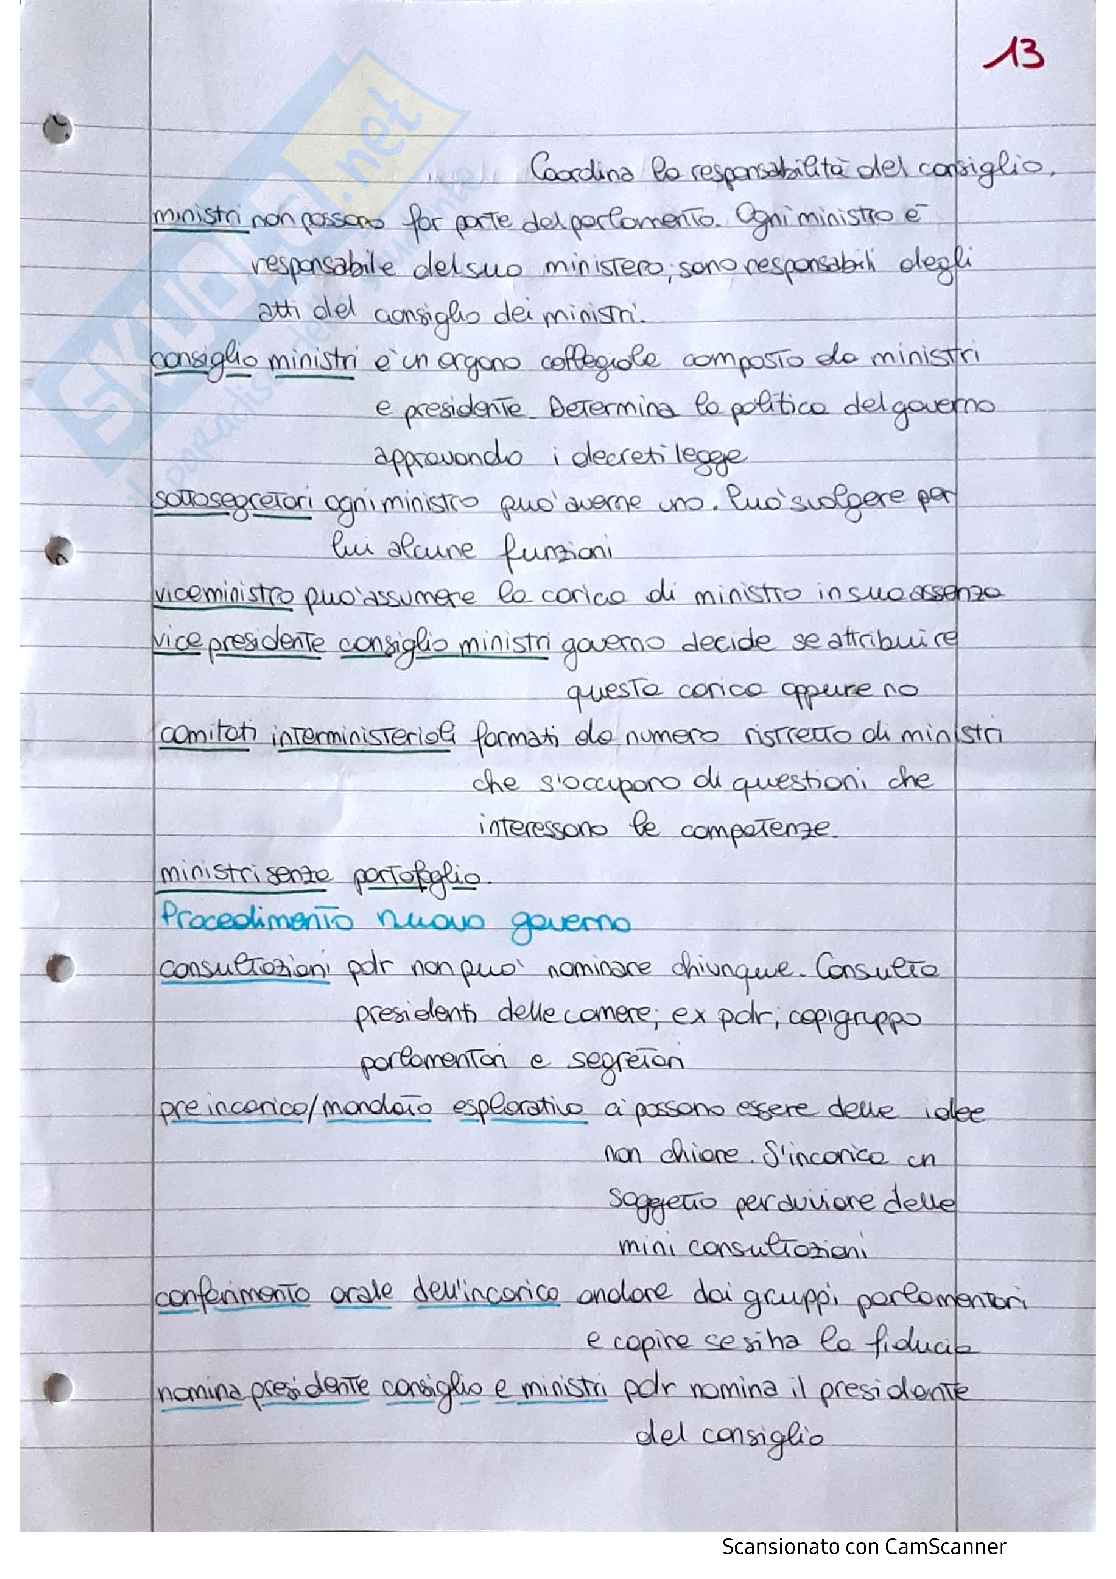 13
Coordina la responsabilità del consiglio.
ministri non possono far parte del parlamento. Ogni ministro è
responsabile del suo ministero; sono responsabili degli
atti del consiglio dei ministri.
consiglio ministri è un organo collegiale composto da ministri
e presidente. Determina la politica del governo
approvando i decreti legge
sottosegretari ogni ministro può averne uno. Può svolgere per
lui alcune funzioni
viceministro può assumere la carica di ministro in sua assenza
vice presidente consiglio ministri governo decide se attribuire
questa carica oppure no
comitati interministeriali formati da numero ristretto di ministri
che s'occupano di questioni che
interessano le competenze.
ministri senza portafoglio.
Procedimento nuovo governo
consultazioni pdr non può nominare chiunque. Consulta
presidenti delle camere; ex pdr; capigruppo
parlamentari e segretari
preincarico/mandato esplorativo ci possono essere delle idee
non chiare. S'incarica un
soggetto per avviare delle
mini consultazioni
conferimento orale dell'incarico andare dai gruppi parlamentari
e capire se si ha la fiducia
nomina presidente consiglio e ministri pdr nomina il presidente
del consiglio
SKUOLA.net
Scansionato con CamScanner